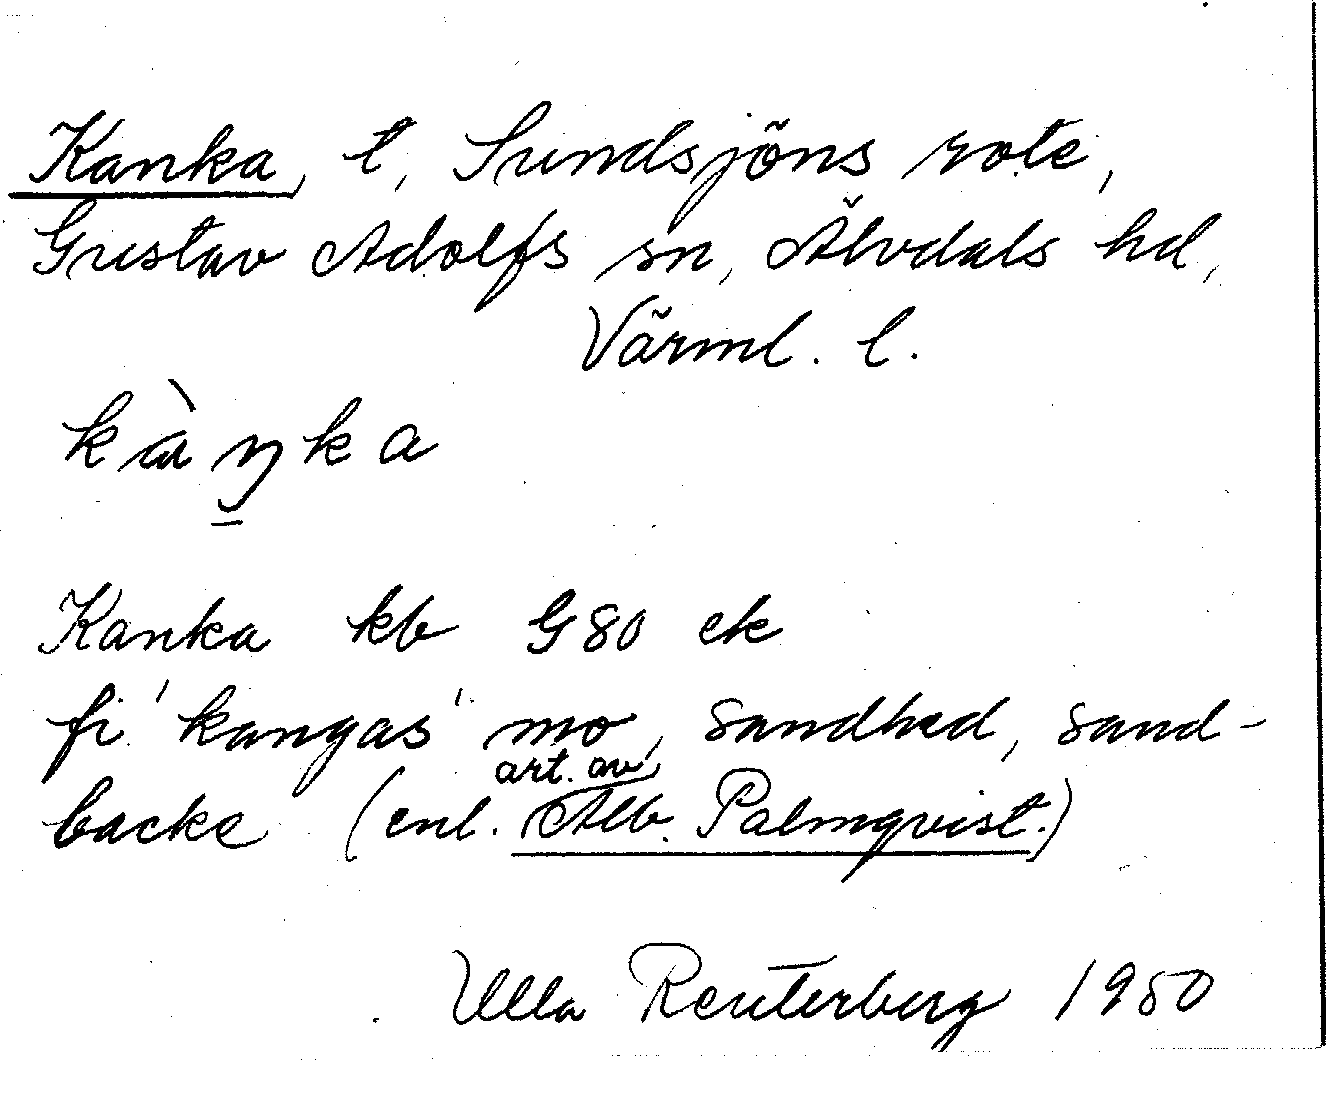 Kanka, t, Sundsjöns rote,
Gustav Adolfs sn, Älvdals hd,
Värml. l.
kàŋka
Kanka kb G80 ek
fi 'kangas' mo, sandhed, sand-
backe (enl. art. av Alb. Palmqvist.)
Ulla Reuterberg 1950